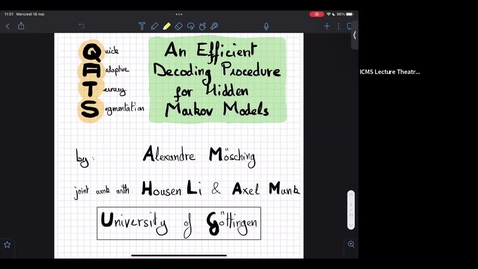 11:51 Mercredi 18 mai
Quick
Adaptive
Ternary
Segmentation
An Efficient
Decoding Procedure
for Hidden
Markov Models
by: Alexandre Mösching
joint work with Housen Li & Axel Munk
University of Göttingen
ICMS Lecture Theatr...